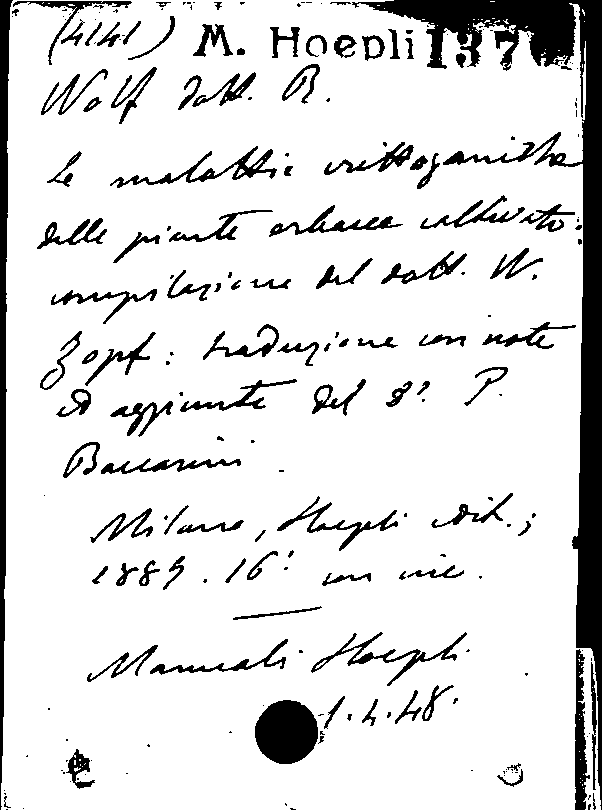 (4141) M. Hoepli 137
Wolf dott. R.
Le malattie crittogamiche
delle piante erbacee coltivate:
compilazione del dott. W.
Zopf: traduzione con note
ed aggiunte del d.r P.
Baccarini.
Milano, Hoepli edit.;
1889. 16.° con inc.
Manuali Hoepli
1.4.48.